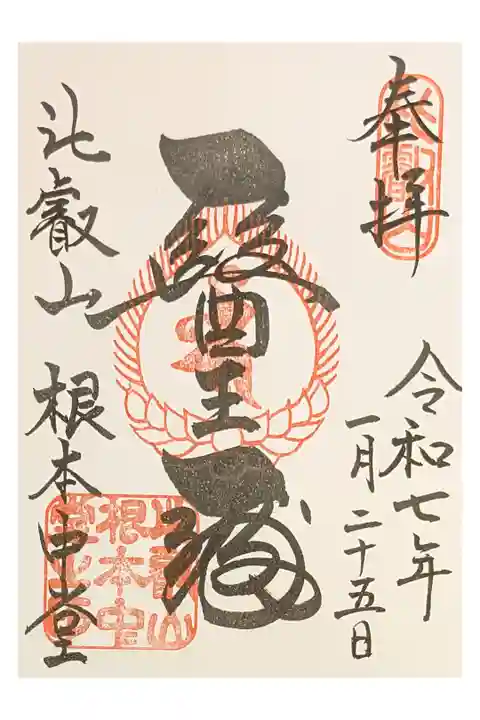 奉拝
令和七年
一月二十五日
醫王殿
比叡山 根本中堂
根本中堂